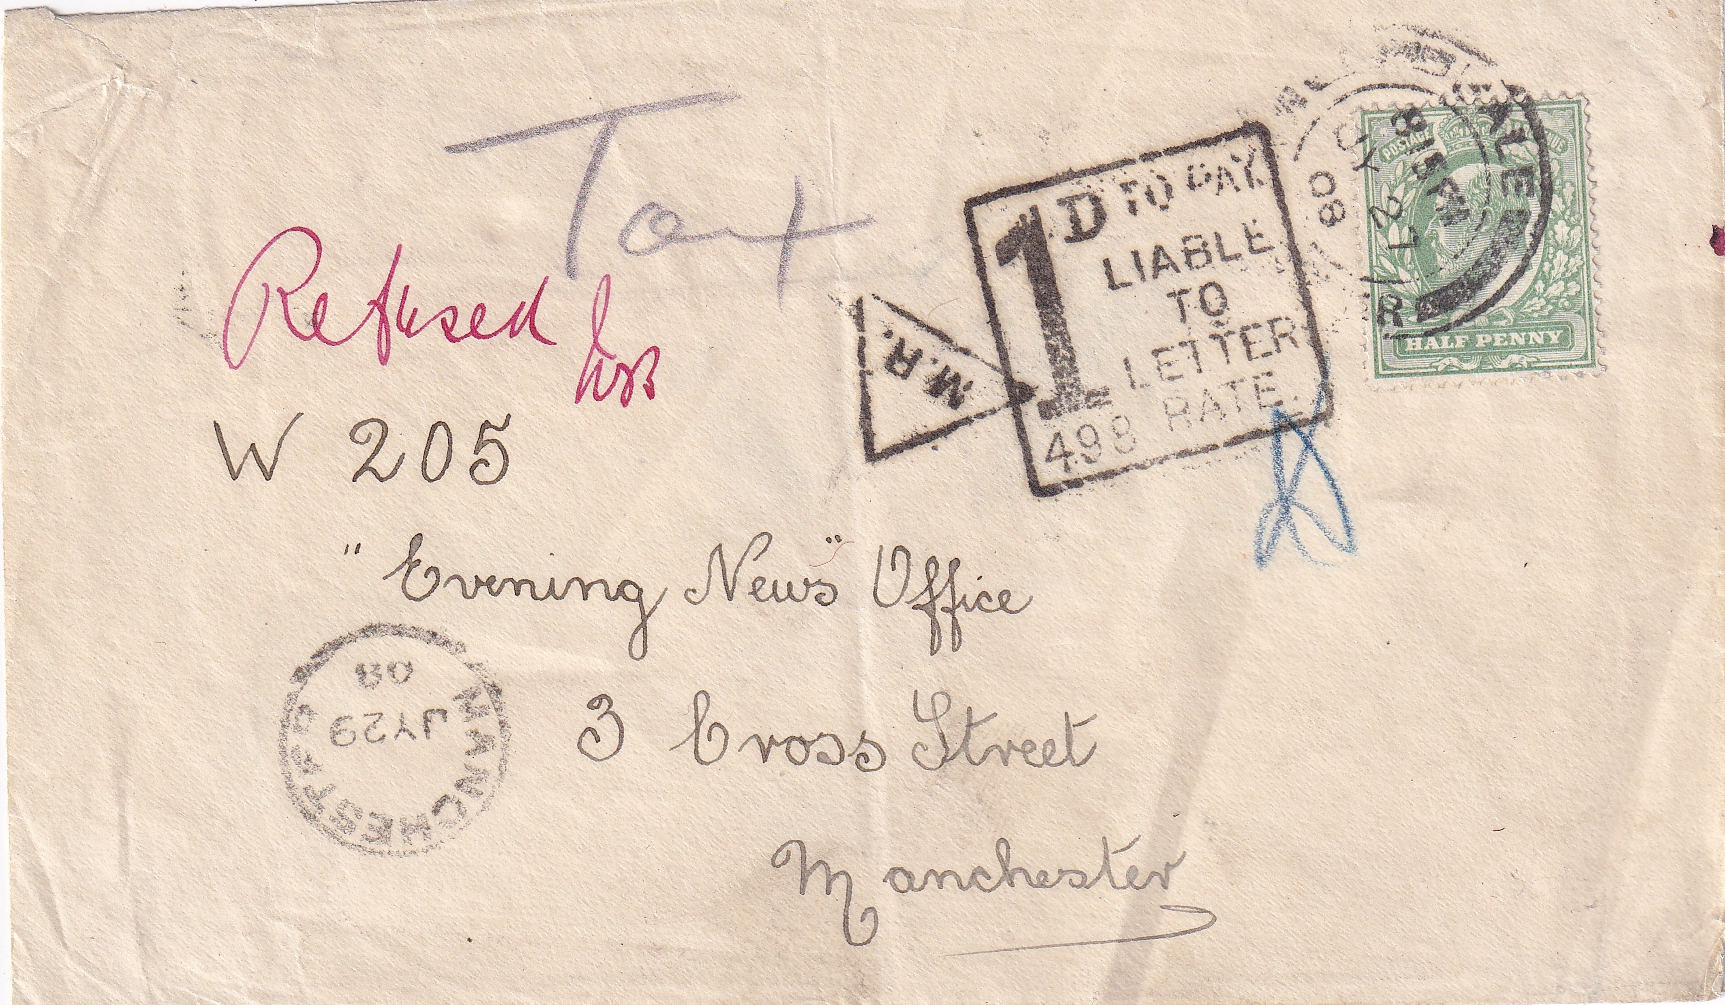 Tax
Refused
W 205
"Evening News" Office
3 Cross Street
Manchester
1D TO PAY
LIABLE
TO
LETTER
RATE.
498
M.R.
8 15 PM
JY 27
08
POSTAGE
HALF PENNY
MANCHESTER
JY 29
08